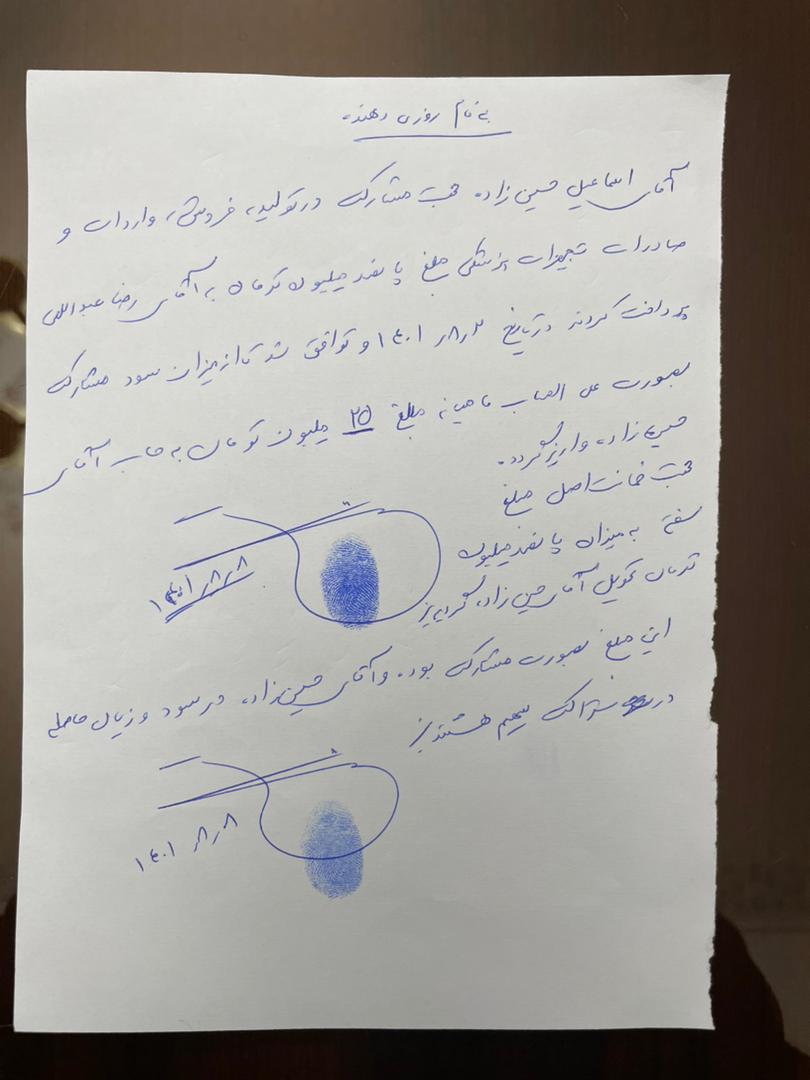 بنام روزی دهنده
آقای اسماعیل حسین زاده جهت مشارکت در تولید، فروش، واردات و
صادرات تجهیزات پزشکی مبلغ پانصد میلیون تومان به آقای رضا عبداللهی
پرداخت کردند در تاریخ ۱۴۰۱٫۸٫ و توافق شد تا از میزان سود مشارکت
بصورت علی الحساب ماهیانه مبلغ ۲۵ میلیون تومان به حساب آقای
حسین زاده واریز گردد.
جهت ضمانت اصل مبلغ
سفته به میزان پانصد میلیون
تومان تحویل آقای حسین زاده گردید
۱۴۰۱٫۸٫۸
این مبلغ بصورت مشارکت بوده و آقای حسین زاده در سود و زیان حاصله
در شراکت سهیم هستند
۱۴۰۱٫۸٫۸